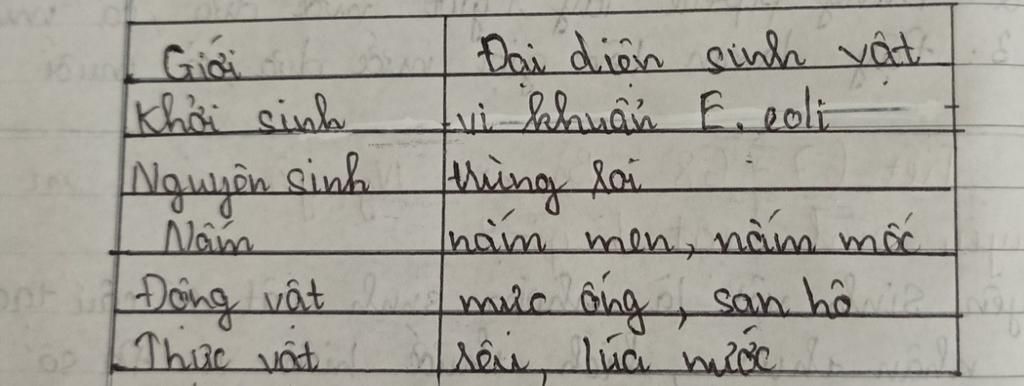 Giới Đại diện sinh vật
Khởi sinh vi khuẩn E. coli
Nguyên sinh trùng roi
Nấm nấm men, nấm mốc
Động vật mực ống, san hô
Thực vật rêu, lúa nước